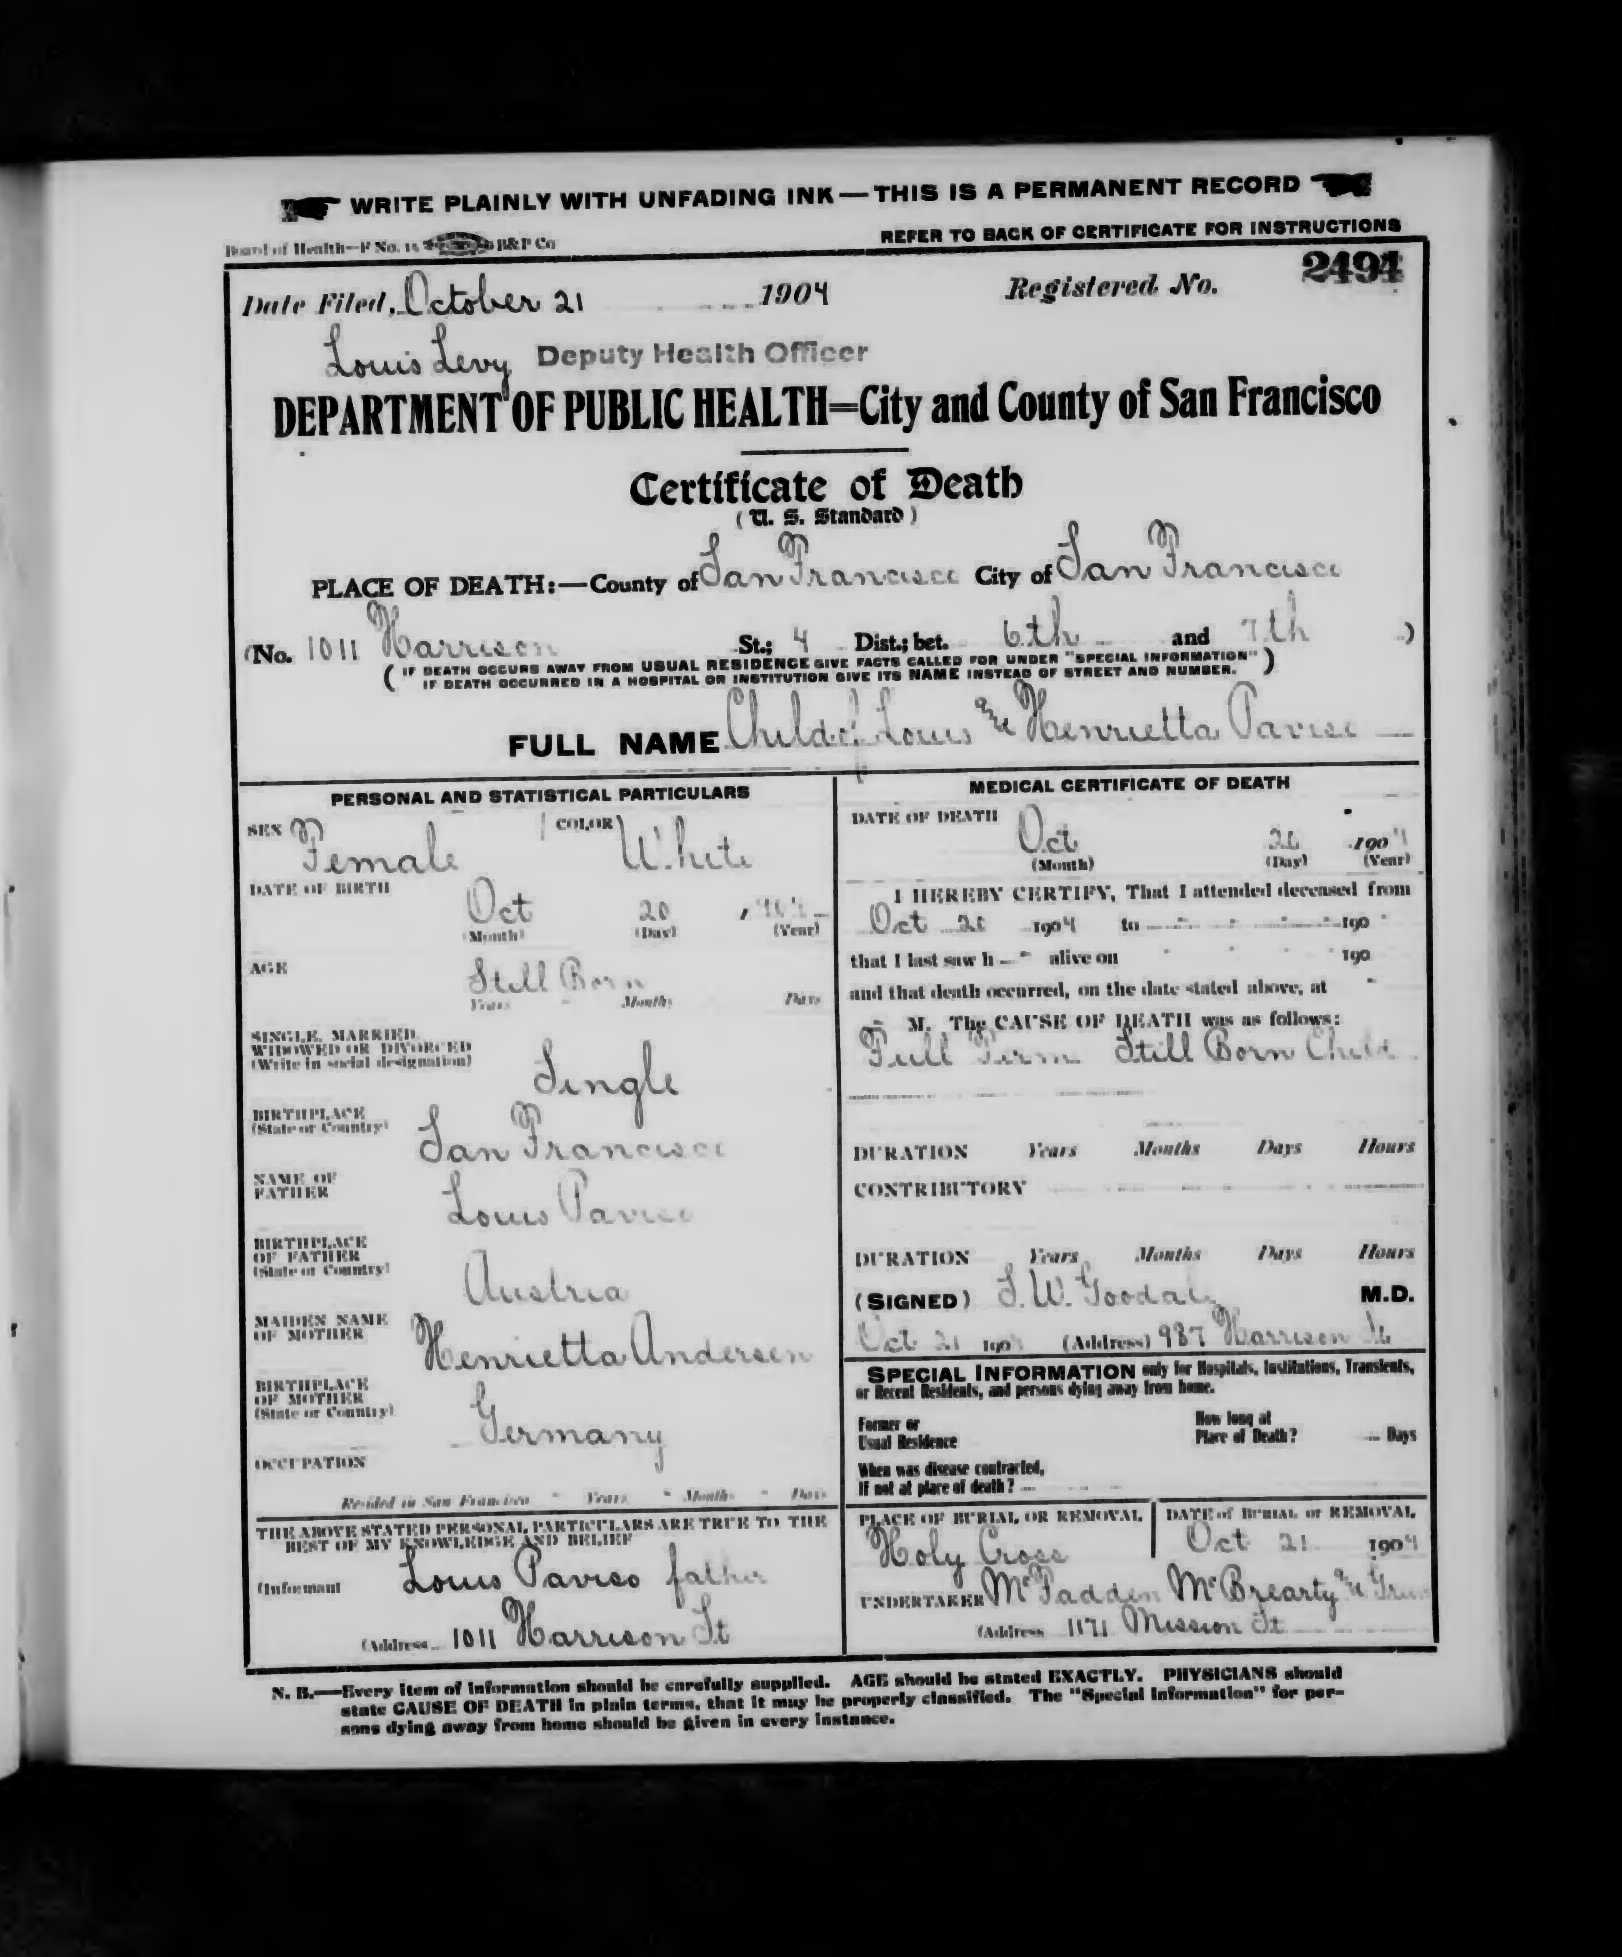 WRITE PLAINLY WITH UNFADING INK—THIS IS A PERMANENT RECORD
Board of Health—F No. B&P Co REFER TO BACK OF CERTIFICATE FOR INSTRUCTIONS
Date Filed, October 21 1904 Registered No. 2494
Louis Levy Deputy Health Officer
DEPARTMENT OF PUBLIC HEALTH=City and County of San Francisco
Certificate of Death
(U. S. Standard)
PLACE OF DEATH:—County of San Francisco City of San Francisco
(No. 1011 Harrison St.; 4 Dist.; bet. 6th and 7th )
( IF DEATH OCCURS AWAY FROM USUAL RESIDENCE GIVE FACTS CALLED FOR UNDER "SPECIAL INFORMATION" )
IF DEATH OCCURRED IN A HOSPITAL OR INSTITUTION GIVE ITS NAME INSTEAD OF STREET AND NUMBER.
FULL NAME Child of Louis and Henrietta Paviso
PERSONAL AND STATISTICAL PARTICULARS
SEX Female COLOR White
DATE OF BIRTH
Oct 20 , 1904
(Month) (Day) (Year)
AGE Still Born
Years Months Days
SINGLE, MARRIED,
WIDOWED OR DIVORCED
(Write in social designation) Single
BIRTHPLACE
(State or Country) San Francisco
NAME OF
FATHER Louis Paviso
BIRTHPLACE
OF FATHER
(State or Country) Austria
MAIDEN NAME
OF MOTHER Henrietta Andersen
BIRTHPLACE
OF MOTHER
(State or Country) Germany
OCCUPATION
Resided in San Francisco Years Months Days
THE ABOVE STATED PERSONAL PARTICULARS ARE TRUE TO THE
BEST OF MY KNOWLEDGE AND BELIEF
(Informant Louis Paviso father
(Address 1011 Harrison St
MEDICAL CERTIFICATE OF DEATH
DATE OF DEATH
Oct 20 1904
(Month) (Day) (Year)
I HEREBY CERTIFY, That I attended deceased from
Oct 20 1904 to 190
that I last saw h alive on 190
and that death occurred, on the date stated above, at
M. The CAUSE OF DEATH was as follows:
Full Term Still Born Child
DURATION Years Months Days Hours
CONTRIBUTORY
DURATION Years Months Days Hours
(SIGNED) S. W. Goodale M.D.
Oct 21 1904 (Address) 937 Harrison St
SPECIAL INFORMATION only for Hospitals, Institutions, Transients,
or Recent Residents, and persons dying away from home.
Former or
Usual Residence
How long at
Place of Death? Days
When was disease contracted,
If not at place of death?
PLACE OF BURIAL OR REMOVAL
Holy Cross
DATE of BURIAL or REMOVAL
Oct 21 1904
UNDERTAKER McFadden McBrearty and Green
(Address 1171 Mission St
N. B.—Every item of information should be carefully supplied. AGE should be stated EXACTLY. PHYSICIANS should
state CAUSE OF DEATH in plain terms, that it may be properly classified. The "Special Information" for per-
sons dying away from home should be given in every instance.